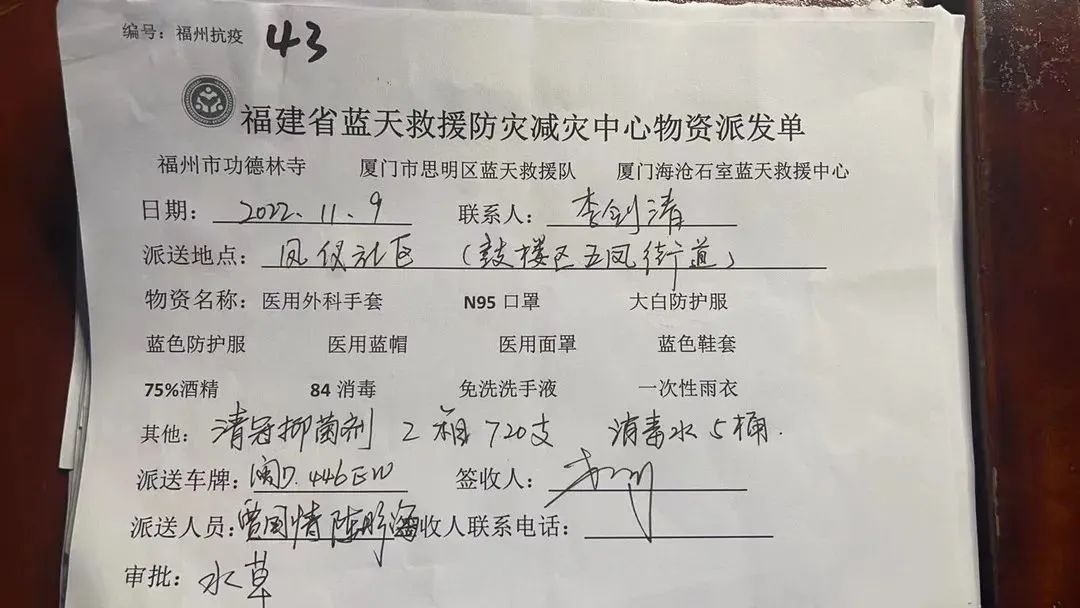 编号：福州抗疫 43
福建省蓝天救援防灾减灾中心物资派发单
福州市功德林寺 厦门市思明区蓝天救援队 厦门海沧石室蓝天救援中心
日期：2022.11.9 联系人：李剑清
派送地点：凤仪社区（鼓楼区五凤街道）
物资名称：医用外科手套 N95口罩 大白防护服
蓝色防护服 医用蓝帽 医用面罩 蓝色鞋套
75%酒精 84消毒 免洗洗手液 一次性雨衣
其他：清冠抑菌剂 2箱720支 消毒水5桶.
派送车牌：闽D.446EW 签收人：
派送人员：曾国情 陈 收人联系电话：
审批：水草